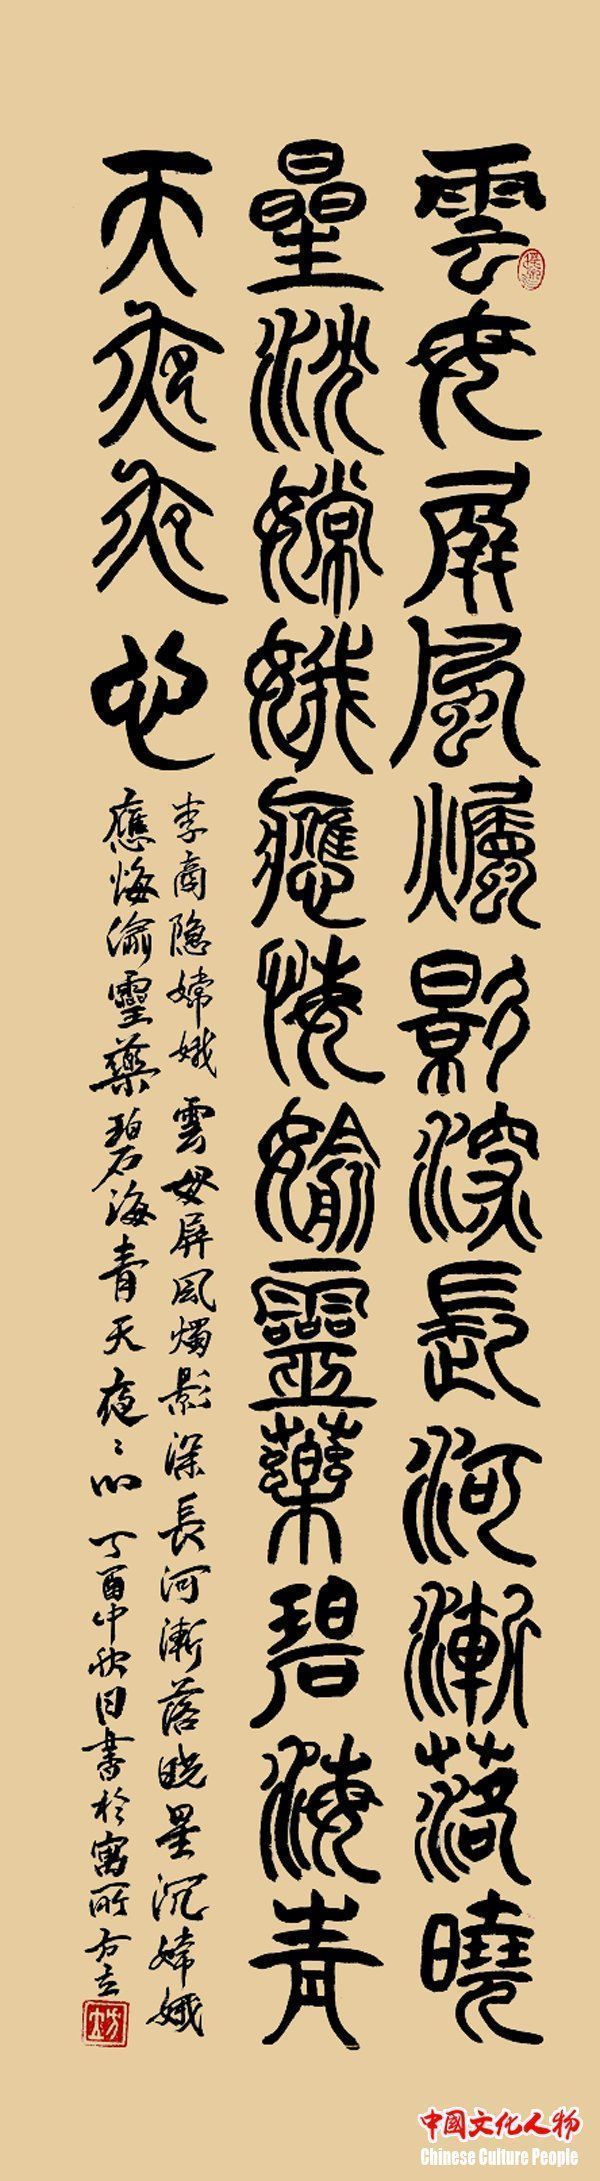 雲母屏風燭影深長河漸落曉
星沈嫦娥應悔媮靈藥碧海青
天夜夜心
李商隐嫦娥雲母屏風燭影深長河漸落曉星沉嫦娥
應悔偷靈藥碧海青天夜〻心丁酉中秋日書於寓所方立
中國文化人物
Chinese Culture People